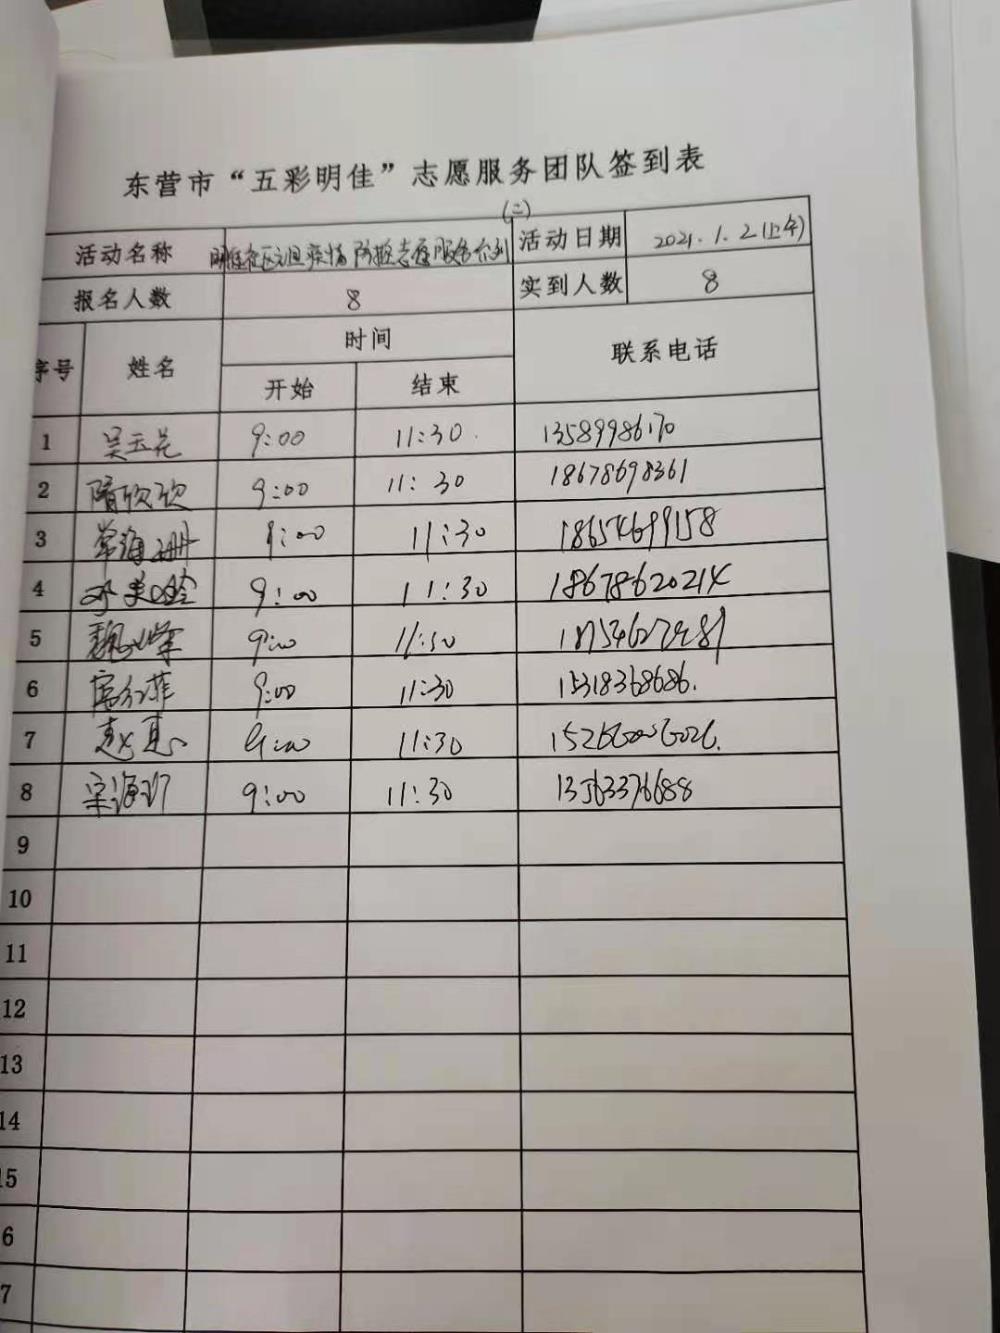 东营市“五彩明佳”志愿服务团队签到表
(二)
活动名称 明佳社区元旦疫情防控志愿服务系列 活动日期 2021.1.2(上午)
报名人数 8 实到人数 8
序号 姓名 时间 联系电话
开始 结束
1 吴玉花 9:00 11:30. 13589986170
2 隋欣欣 9:00 11:30 18678698361
3 常海珊 9:00 11:30 18654699158
4 邓美玲 9:00 11:30 18678620214
5 9:00 11:30
6 9:00 11:30 15318368686.
7 赵惠 9:00 11:30 15266006026.
8 9:00 11:30 13563376688
9
10
11
12
13
14
15
6
7